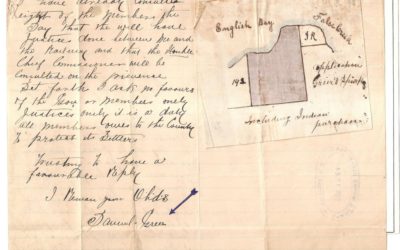 I have already consulted
eight of the Members the
Say that the will have
Justice done between Me and
the Railway and that the Honble
Chief Commissioner will be
Consulted on the grievance
Set forth I ask no favours
of the Gov or Members only
Justice only it is a duty
the Members owes to the County
to protect its Settlers
Trusting to have a
favourable Reply
I Remain your Obdt
Samuel Greer
English Bay
False Creek
I R
192
application
Greer's
Including Indian
purchase